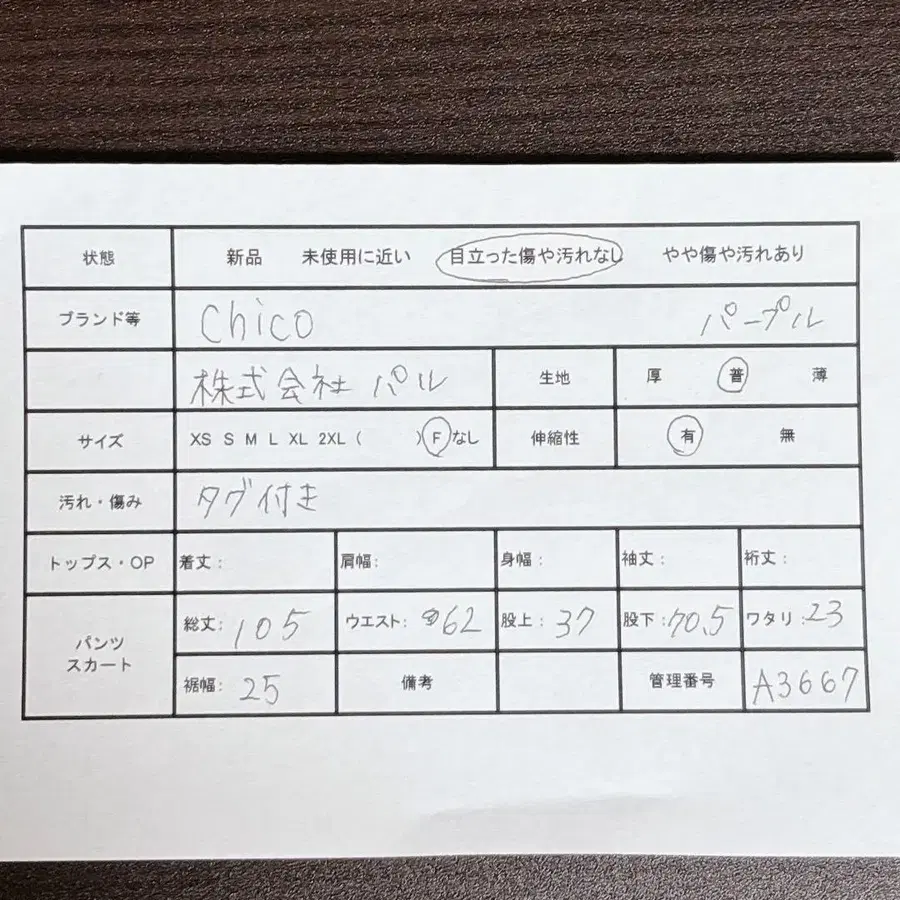 状態 新品 未使用に近い 目立った傷や汚れなし やや傷や汚れあり
ブランド等 Chico パープル
株式会社 パル 生地 厚 普 薄
サイズ XS S M L XL 2XL ( ) F なし 伸縮性 有 無
汚れ・傷み タグ付き
トップス・OP 着丈: 肩幅: 身幅: 袖丈: 裄丈:
パンツ
スカート
総丈: 105 ウエスト: 62 股上: 37 股下: 70.5 ワタリ: 23
裾幅: 25 備考 管理番号 A3667